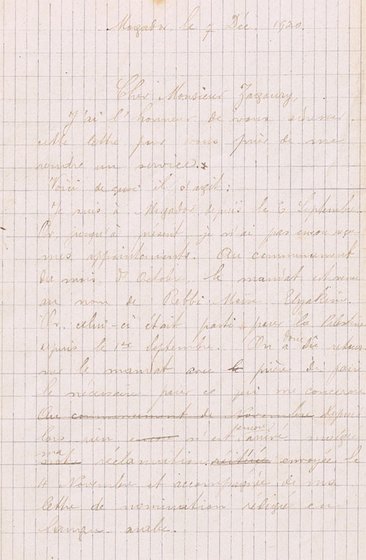 Mogador le 7 Déc. 1920.
Cher Monsieur Zagoury,
J'ai l'honneur de vous adresser
cette lettre pour vous prier de me
rendre un service.
Voici de quoi il s'agit:
Je suis à Mogador depuis le 6 Septembre
Or jusqu'à présent je n'ai pas encore reçu
mes appointements. Au commencement
du mois d'Octobre le mandat est venu
au nom de Rebbi Meir Elyakim.
Or celui-ci était parti pour la Palestine
depuis le 1er Septembre. On a donc dû retour
ner le mandat avec prière de faire
le nécessaire pour ce qui me concerne
Au commencement de Novembre depuis
lors rien n'est encore arrivé malgré
ma réclamation envoyée le
4 Novembre et accompagnée de ma
lettre de nomination rédigée en
langue arabe.